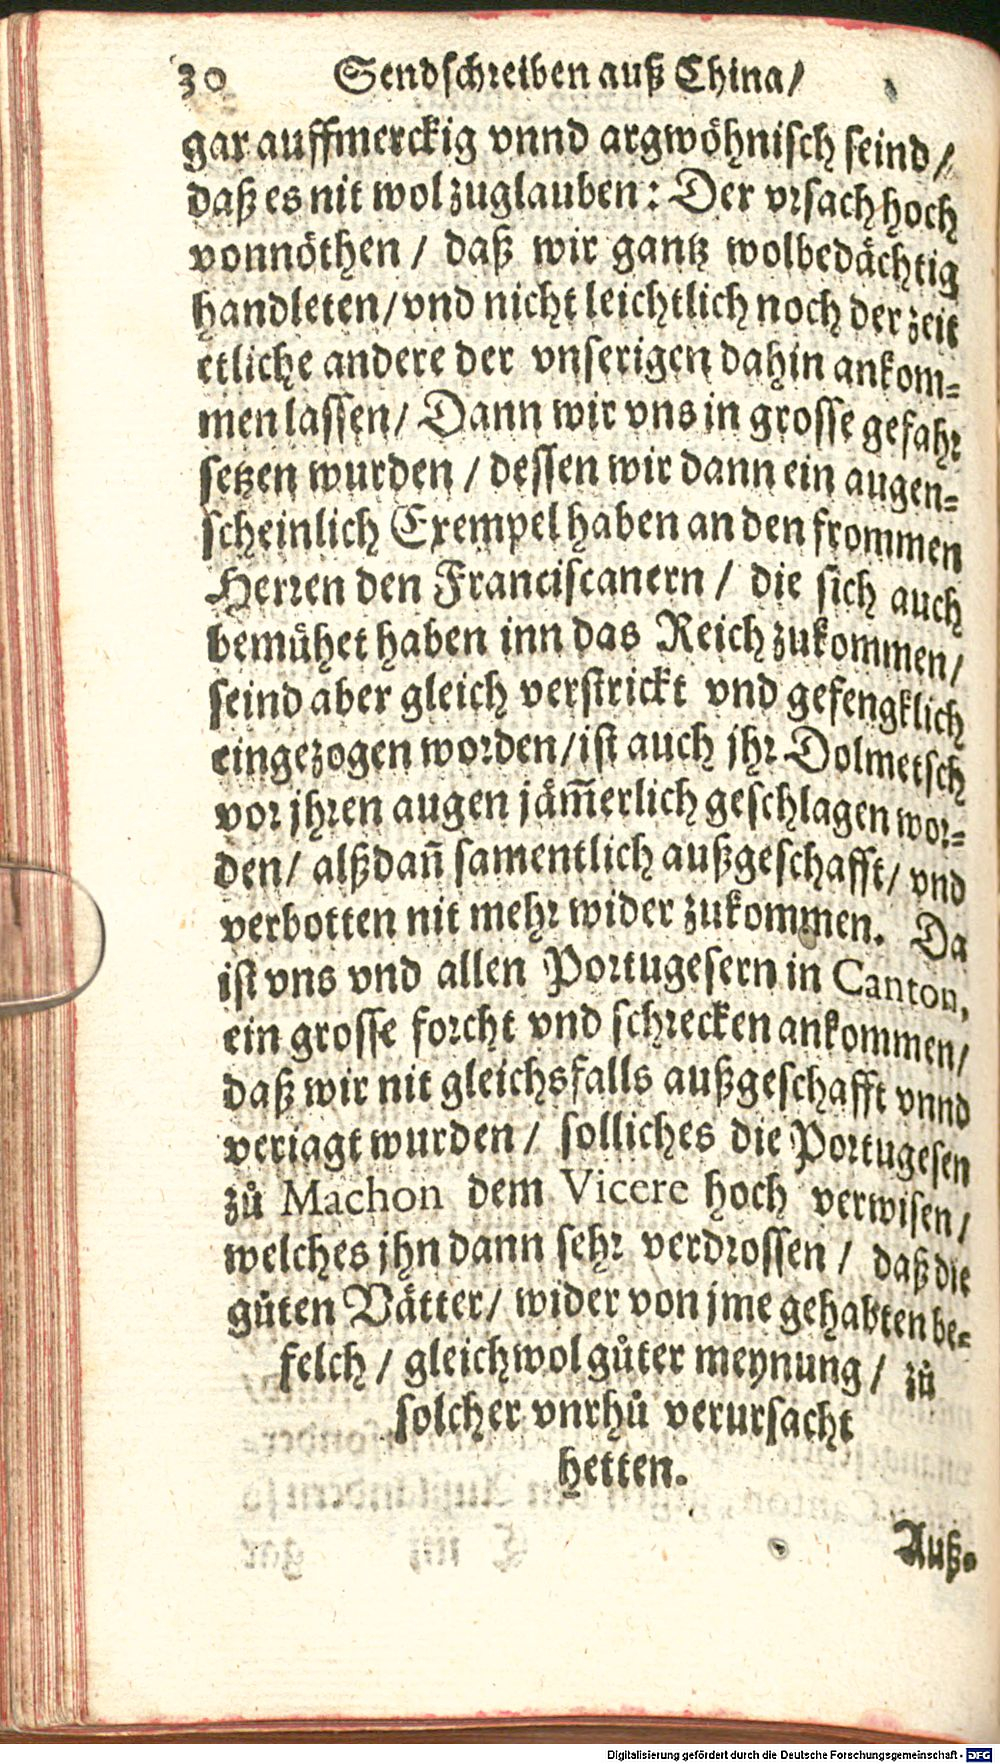 30 Sendschreiben auß China/
gar auffmerckig vnnd argwöhnisch seind/
daß es nit wol zuglauben: Der vrsach hoch
vonnöthen / daß wir gantz wolbedächtig
handleten/vnd nicht leichtlich noch der zeit
etliche andere der vnserigen dahin ankom-
men lassen/ Dann wir vns in grosse gefahr
setzen wurden / dessen wir dann ein augen-
scheinlich Exempel haben an den frommen
Herren den Franciscanern / die sich auch
bemühet haben inn das Reich zukommen/
seind aber gleich verstrickt vnd gefengklich
eingezogen worden/ist auch jhr Dolmetsch
vor jhren augen jäm̃erlich geschlagen wor-
den/ alßdañ samentlich außgeschafft/ vnd
verbotten nit mehr wider zukommen. Da
ist vns vnd allen Portugesern in Canton,
ein grosse forcht vnd schrecken ankommen/
daß wir nit gleichsfalls außgeschafft vnnd
veriagt wurden / solliches die Portugesen
zů Machon dem Vicere hoch verwisen/
welches jhn dann sehr verdrossen / daß die
gůten Vätter/ wider von jme gehabten be-
felch / gleichwol gůter meynung / zů
solcher vnrhů verursacht
hetten.
Auß-
Digitalisierung gefördert durch die Deutsche Forschungsgemeinschaft - DFG